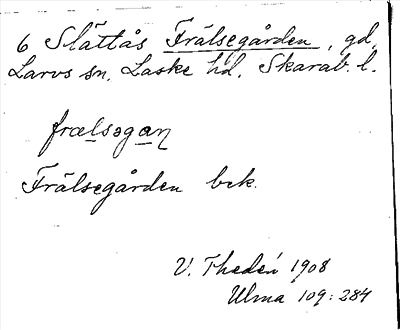 6 Slättås Frälsegården, gd,
Larvs sn. Laske hd. Skarab. l.
frælsəgan
Frälsegården bek.
V. Thedén 1908
Ulma 109:284